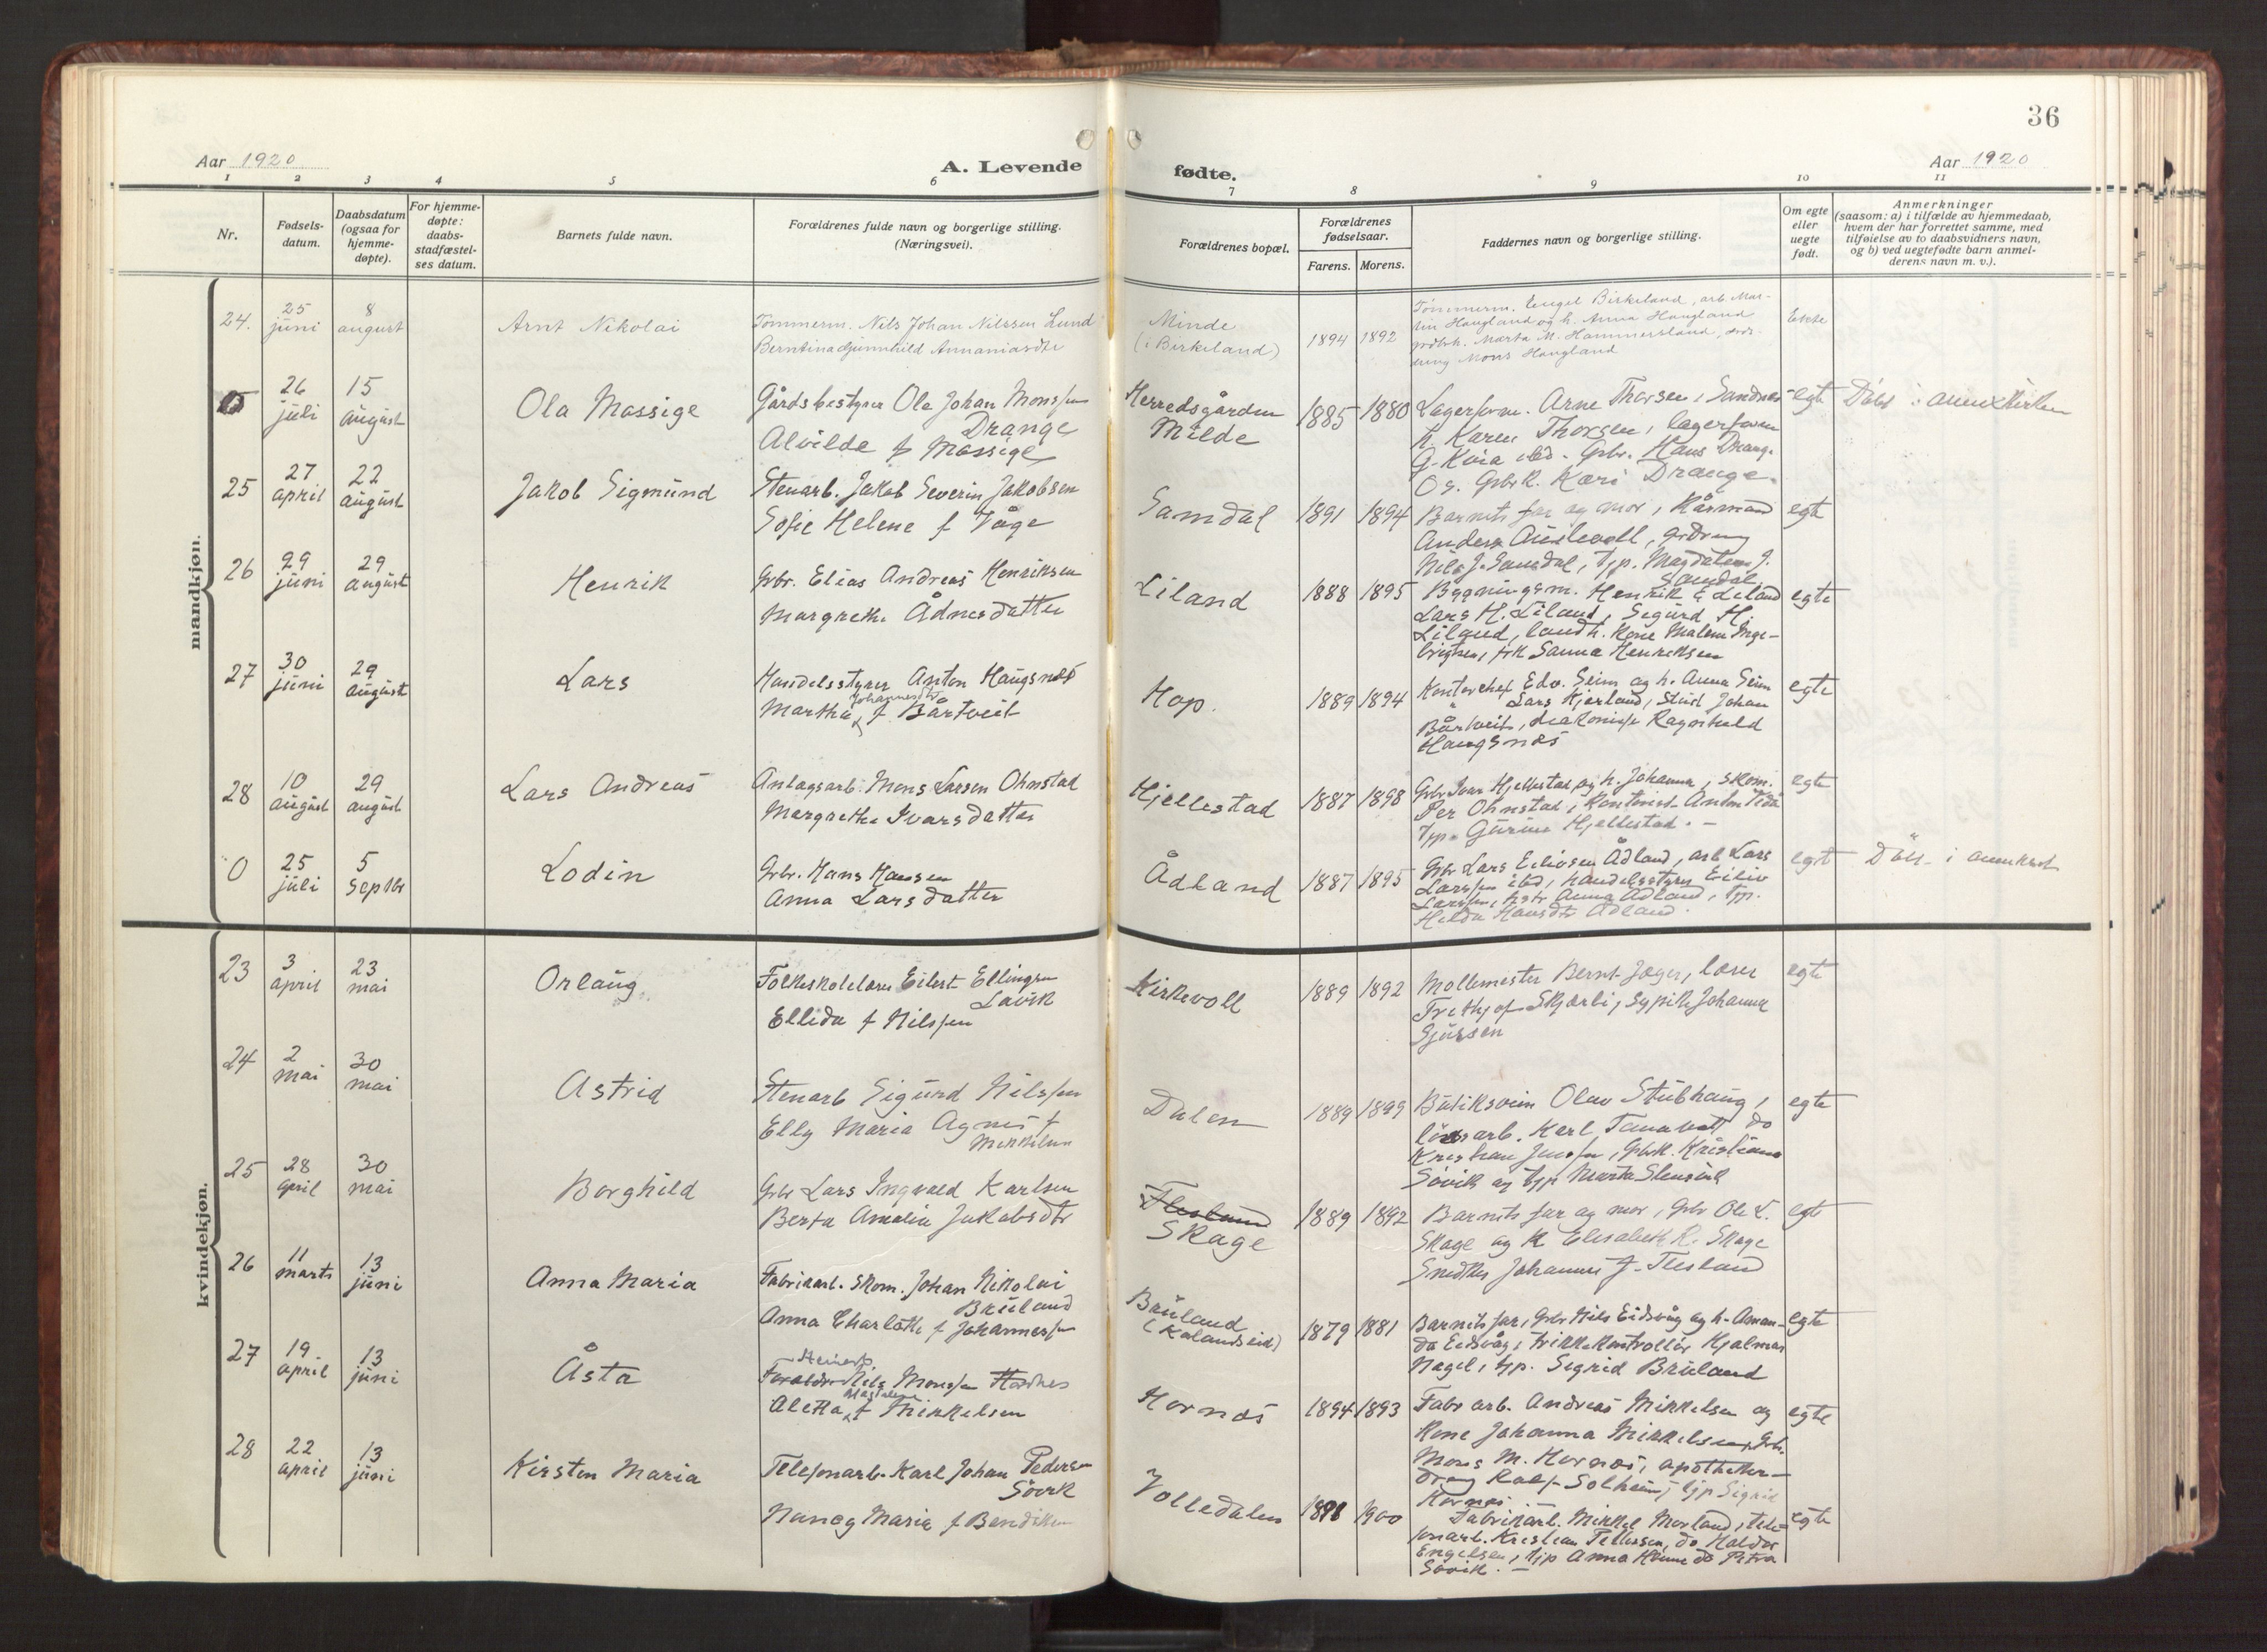 36
Aar 1920
A. Levende
fødte.
Aar 1920
1 2 3 4 5 6 7 8 9 10 11
Nr.
Fødsels-
datum.
Daabsdatum
(ogsaa for
hjemme-
døpte).
For hjemme-
døpte:
daabs-
stadfæstel-
ses datum.
Barnets fulde navn.
Forældrenes fulde navn og borgerlige stilling.
(Næringsvei).
Forældrenes bopæl.
Forældrenes
fødselsaar.
Farens. Morens.
Faddernes navn og borgerlige stilling.
Om egte
eller
uegte
født.
Anmerkninger
(saasom: a) i tilfælde av hjemmedaab,
hvem der har forrettet samme, med
tilføielse av to daabsvidners navn,
og b) ved uegtefødte barn anmel-
derens navn m. v.).
mandkjøn.
24. 25 juni 8 august Arnt Nikolai
Tømmerm. Nils Johan Nilssen Lund
Berntina Gunnhild Annaniasdtr
Minde
(i Birkeland)
1894 1892
Tömmerm. Engel Birkeland, arb. Mar-
tin Haugland og h. Anna Haugland
grdbrk. Marta M. Hammersland,
Mons Haugland
Ekte
26 juli 15 august Ola Mossige
Gårdsbestyrer Ole Johan Monssen
Drange
Alvilde f Mossige
Herredsgården
Milde
1885 1880
Lagerform. Arne Thorsen, Sandnes
h. Karen Thorsen, lagerform
G. Kvia ibd. Grbr. Hans Drange
Os. Grbrk. Kari Drange.
egte
Döbt i annexkirken
25 27 april 22 august Jakob Sigmund
Stenarb. Jakob Severin Jakobsen
Sofie Helene f Våge
Samdal
1891 1894
Barnets far og mor, Kårmand
Anders Austevoll, grdreng
Nils J. Samdal, tjp. Magdalena J.
Samdal
egte
26 29 juni 29 august Henrik
Grbr. Elias Andreas Henriksen
Margrethe Ådnesdatter
Liland
1888 1895
Bygningsm. Henrik E Liland
Lars H. Liland, Sigurd H.
Liland, landh. Kone Malene Inge-
brigtsen, frk Sanna Henriksen
egte
27 30 juni 29 august Lars
Handelsstyrer Anton Haugsnæs
Johannesdtr
Martha f. Bårtveit
Hop.
1889 1894
Kontorchef Edv. Seim og h. Anna Seim
" Lars Kjerland, Stud Johan
Bårtveit, diakonisse Ragnhild
Haugsnæs
egte
28 10 august 29 august Lars Andreas
Anlægsarb. Mons Larsen Ohnstad
Margrethe Ivarsdatter
Hjellestad
1887 1898
Grbr Ivar Hjellestad og h. Johanna, skom.
Per Ohnstad, Kontorist Anton
tjp. Gurine Hjellestad. —
egte
0 25 juli 5 septbr Lodin
Grbr. Hans Hansen
Anna Larsdatter
Ådland
1887 1895
Grbr Lars Eilivsen Ådland, arb Lars
Larssen ibd, handelsstyrer Eiliv
Larssen, hstr Anna Ådland, tjp.
Helda Hansdtr Ådland.
egte
Döbt i annexk
kvindekjøn.
23 3 april 23 mai Orlaug
Folkeskolelærer Eilert Ellingsen
Lavik
Ellida f Nilssen
Kirkevoll
1889 1892
Møllemester Bernt Jæger, lærer
Frithjof Skjærli, sypike Johanna
Sjursen
egte
24 2 mai 30 mai Astrid
Stenarb Sigurd Nilssen
Elly Maria Agnes f
Mikkelsen
Dalen
1889 1899
Butiksvein Olav Stubhaug,
løsarb. Karl do
Kristian Jenssen, Grbrk. Kristiane
Søvik og tjp Marta Stensvik
egte
25 28 april 30 mai Borghild
Grbr Lars Ingvald Karlsen
Berta Amalia Jakobsdtr
Flesland
Skage
1889 1892
Barnets far og mor, Grbr Ole L.
Skage og K Elisabeth R. Skage
Snedker Johannes J. Flesland
egte
26 11 marts 13 juni Anna Maria
Fabrikarb. Skom. Johan Nikolai
Bruland
Anna Charlotte f Johannessen
Bruland
(Kalandseid)
1879 1881
Barnets far, Grbr Nils Eidsvåg og h. Aman-
da Eidsvåg, trikkekontrollør Hjalmar
Nagel, tjp. Sigrid Bruland
egte
27 19 april 13 juni Åsta
Stenarb
Nils Monssen Hordnes
Magdalena
Aletta f Mikkelsen
Hornæs
1894 1893
Fabr arb. Andreas Mikkelsen og
Kone Johanna Mikkelsen, Grbr.
Mons M. Hornæs, apotheker-
dreng Ralf Solheim, tjp Sigrid
Hornæs
egte
28 22 april 13 juni Kirsten Maria
Telefonarb. Karl Johan Pedersen
Søvik
Nancy Marie f Bendiksen
Volledalen
1898 1900
Fabrikarb. Mikkel Morland, tele-
fonarb. Kristian Tellessen, do Haldor
Engelsen, tjp Anna do Petra
Søvik. —
egte